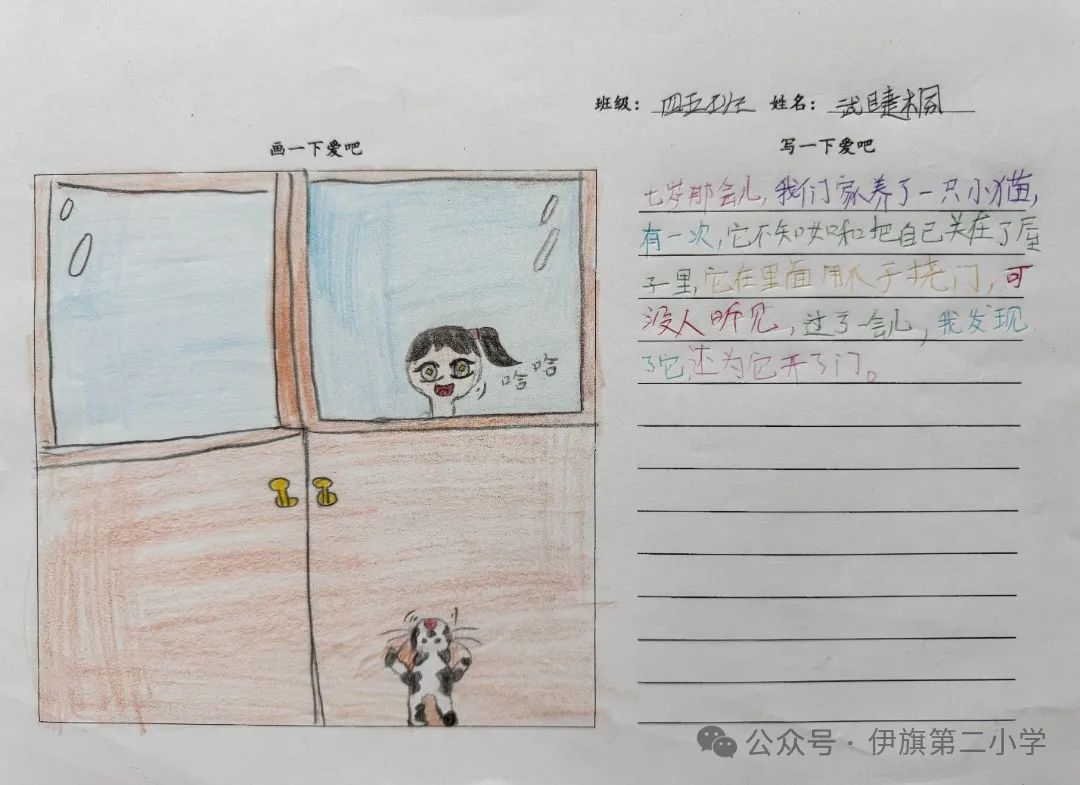 班级：四五班 姓名：武睫桐
画一下爱吧
写一下爱吧
七岁那会儿,我们家养了一只小猫,
有一次,它不知如何把自己关在了屋
子里,它在里面用爪子挠门,可
没人听见,过了一会儿,我发现
了它,还为它开了门。
哈哈
公众号·伊旗第二小学